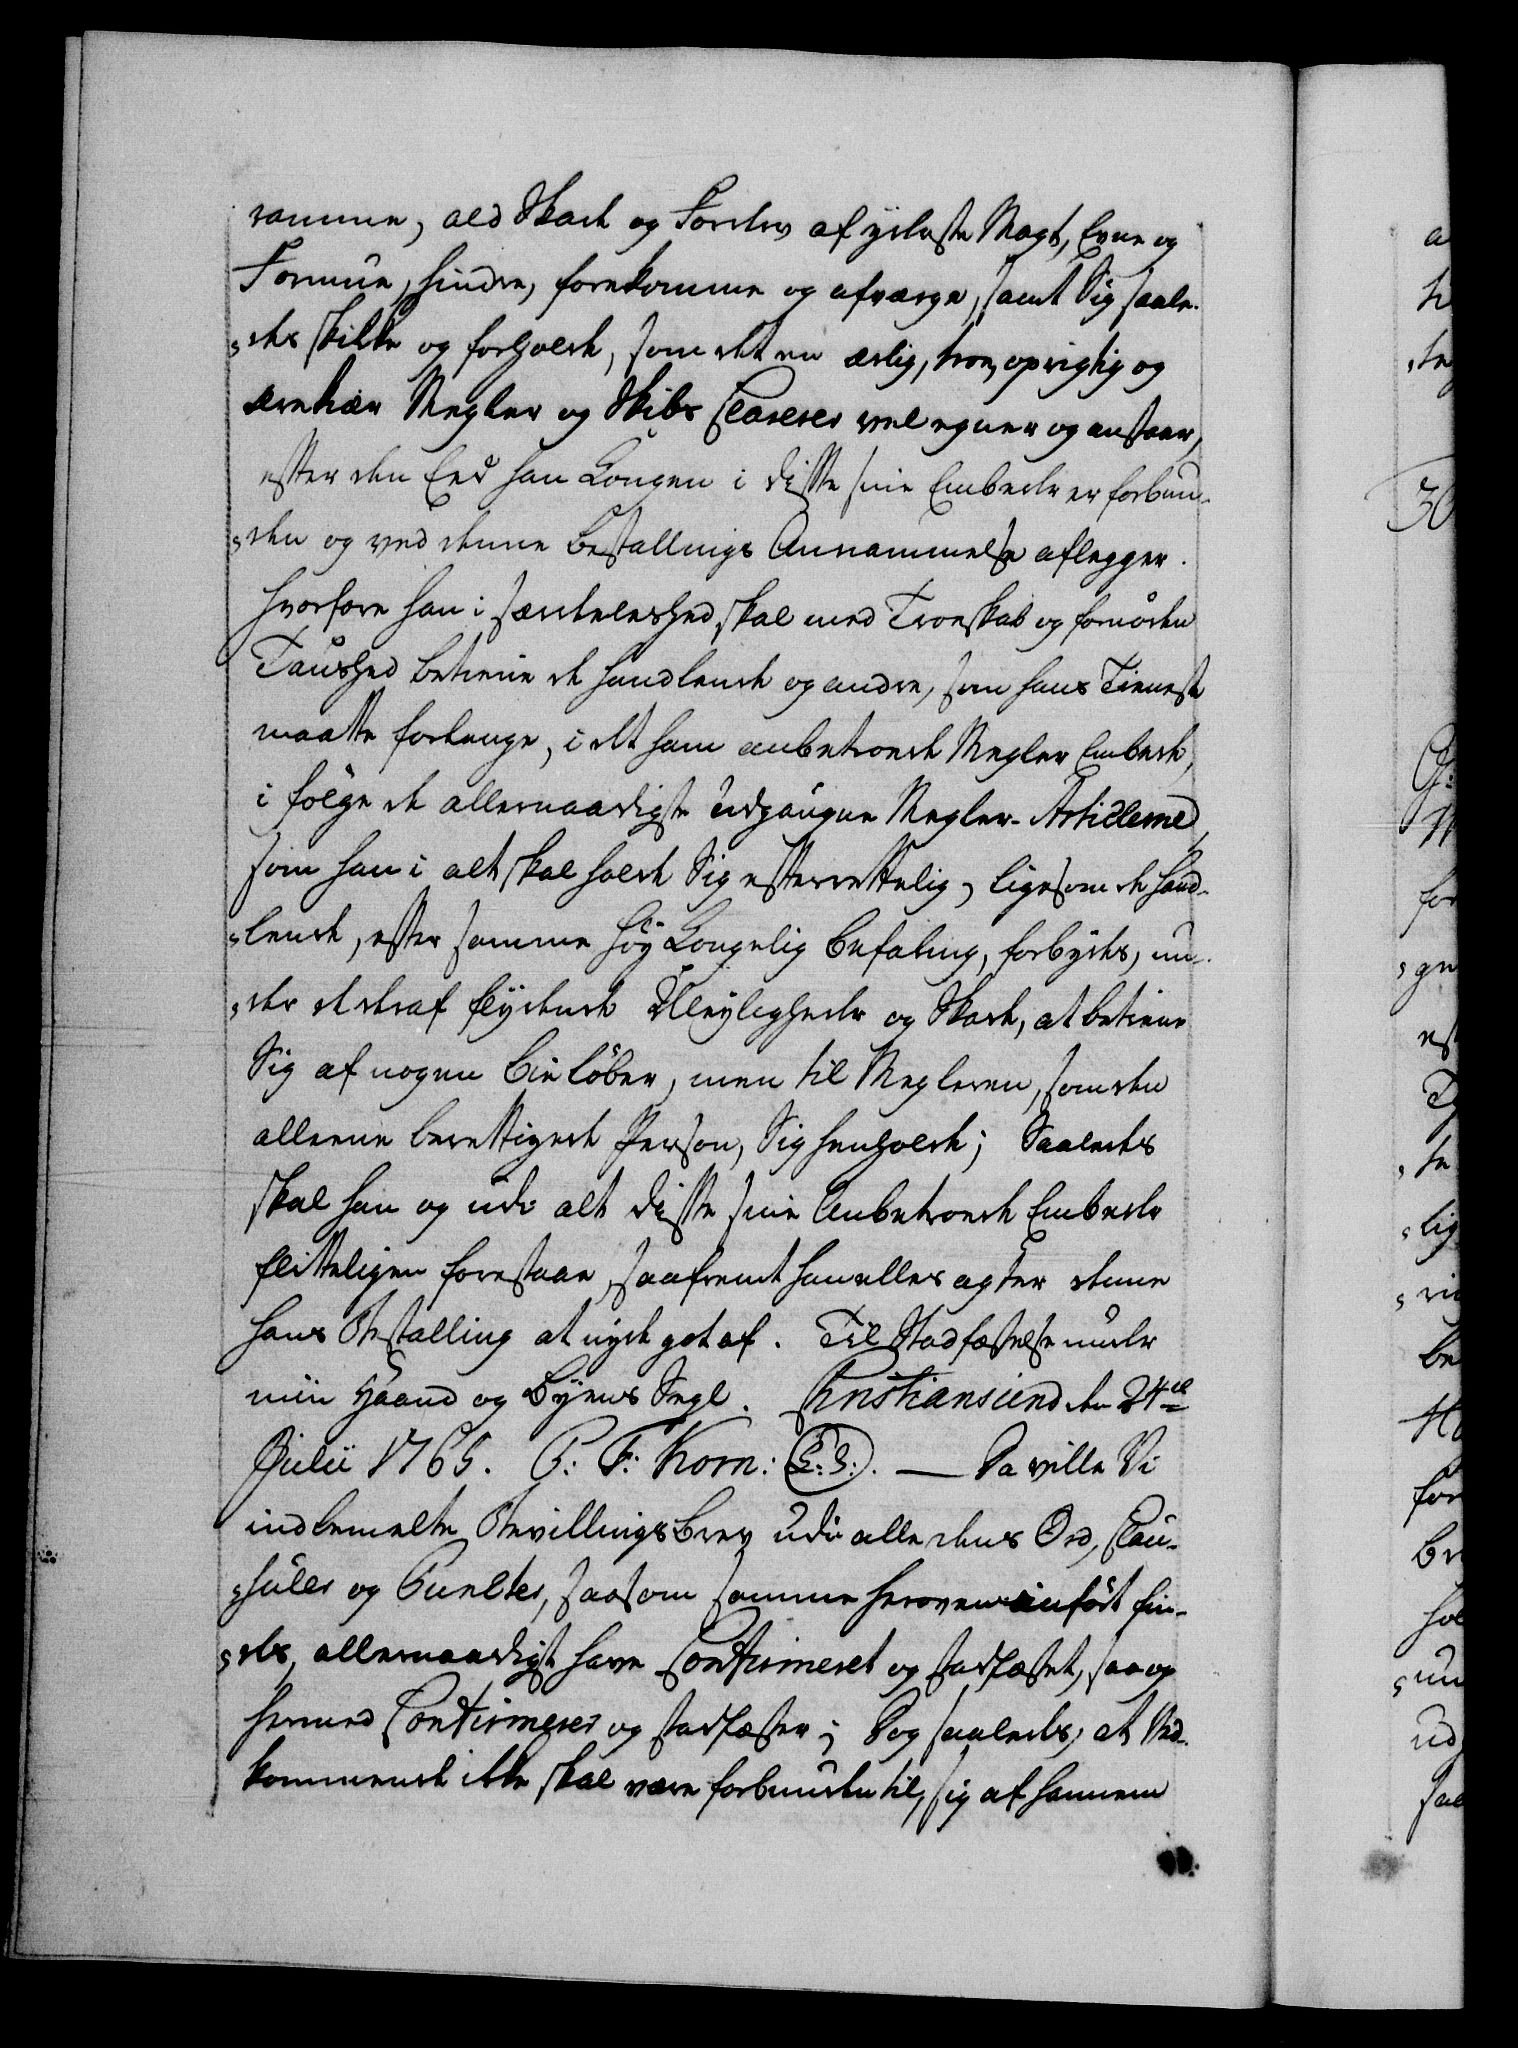 ramme, ald Skade og Forderv af yderste Magt, Evne og
Formue, hindre, forekomme og afværge, samt Sig saale-
des skikke og forholde, som det en ærlig, troe, oprigtig og
ærekiær Megler og Skibs Clarerer vel egner og anstaaer,
efter den Eed han Kongen i disse sine Embeder er forbun-
den og ved denne Bestallings Annammelse aflegger.
hvorfore han i særdeleshed skal med Troeskab og fornöden
Taushed betiene de handlende og andre, som hans Tieneste
maatte forlange, i det ham anbetroede Megler Embede,
i fölge de allernaadigste udgangne Megler-Articlerne,
som han i alt skal holde Sig efterrettelig, ligesom de hand-
lende, efter samme höy Kongelig Befaling, forbydes, un-
der de deraf flydende Ulejligheder og Skade, at betiene
Sig af nogen Bielöber, men til Megleren, som den
alleene berettigede Person, Sig henholde; Saaledes
skal han og udi alt disse sine Anbetroede Embeder
flitteligen forestaae, saafremt han ellers agter denne
hans Bestalling at nyde got af. Til Stadfæstelse under
min Haand og Byens Segl. Christiansund den 24de
Julii 1765. P: F: Korn: (L:S:). — Da ville Vi
indbemelte Bevillings Brev udi alle dens Ord, Clau-
suler og Puncter, saasom samme heroven indfört fin-
des, allernaadigst have Confirmeret og stadfæstet, saa og
hermed Confirmerer og stadfæster; Dog saaledes, at Ved-
kommende ikke skal være forbunden til, sig af hannem